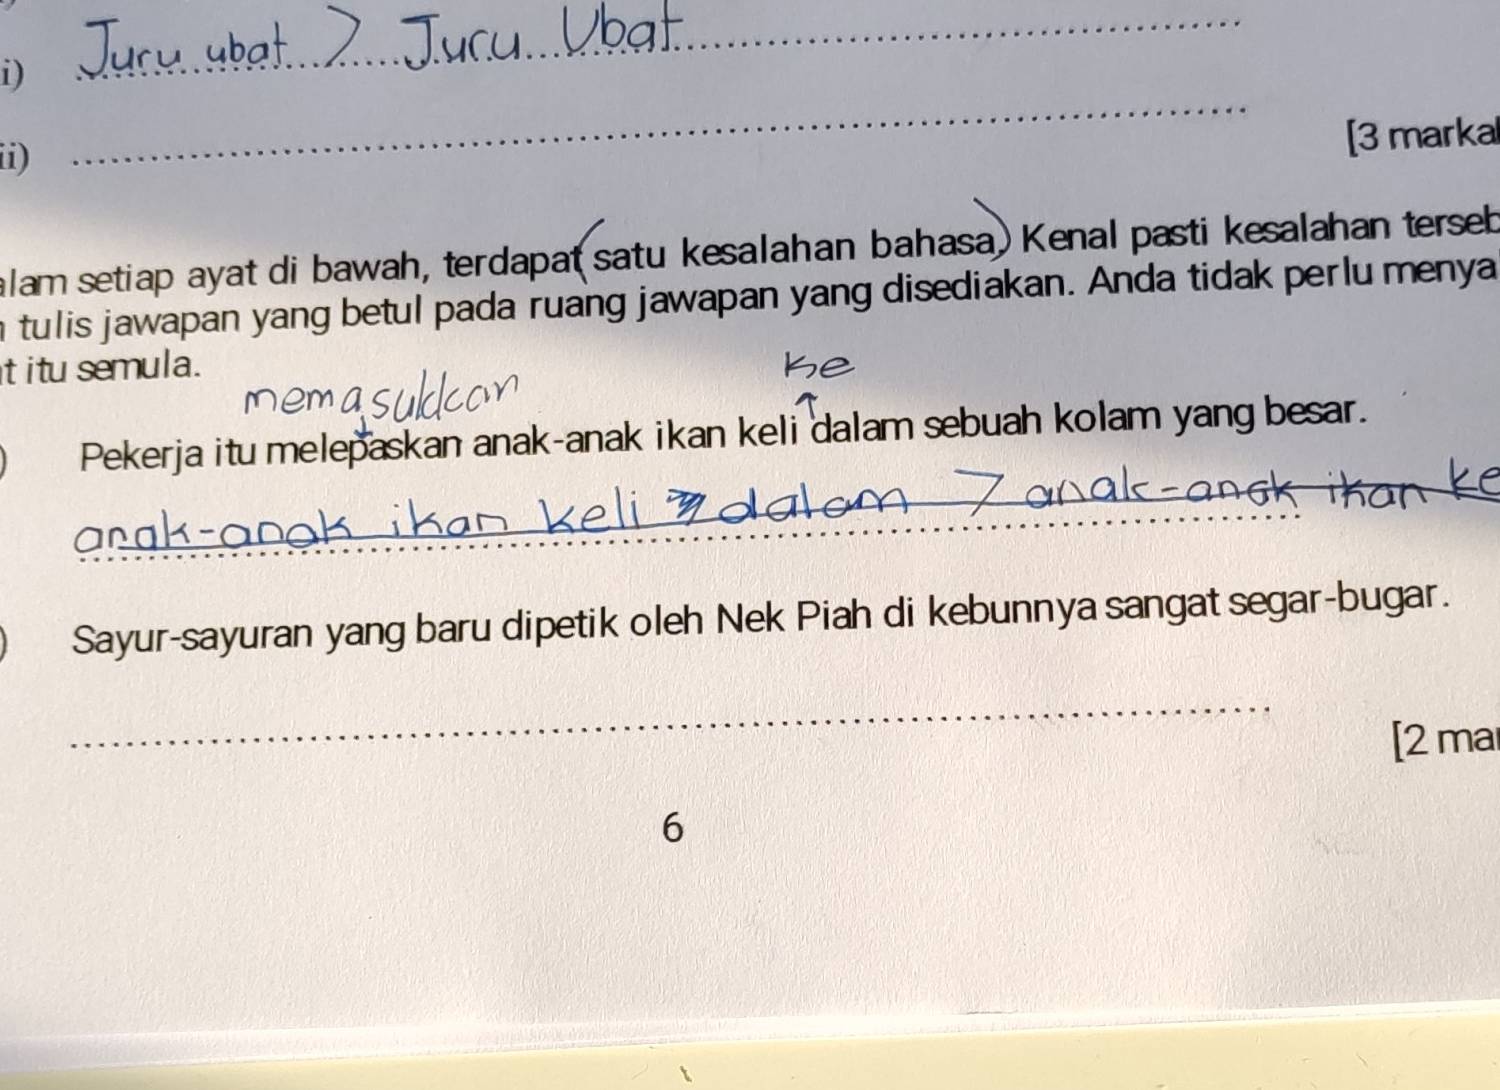 i) Juru ubat > Juru Ubat
ii)
[3 markah
alam setiap ayat di bawah, terdapat (satu kesalahan bahasa.) Kenal pasti kesalahan terseb
n tulis jawapan yang betul pada ruang jawapan yang disediakan. Anda tidak perlu menya
t itu semula.
memasukkan ke
) Pekerja itu melepaskan anak-anak ikan keli dalam sebuah kolam yang besar.
anak-anak ikan keli dalam > anak-anak ikan ke
) Sayur-sayuran yang baru dipetik oleh Nek Piah di kebunnya sangat segar-bugar.
[2 mar
6